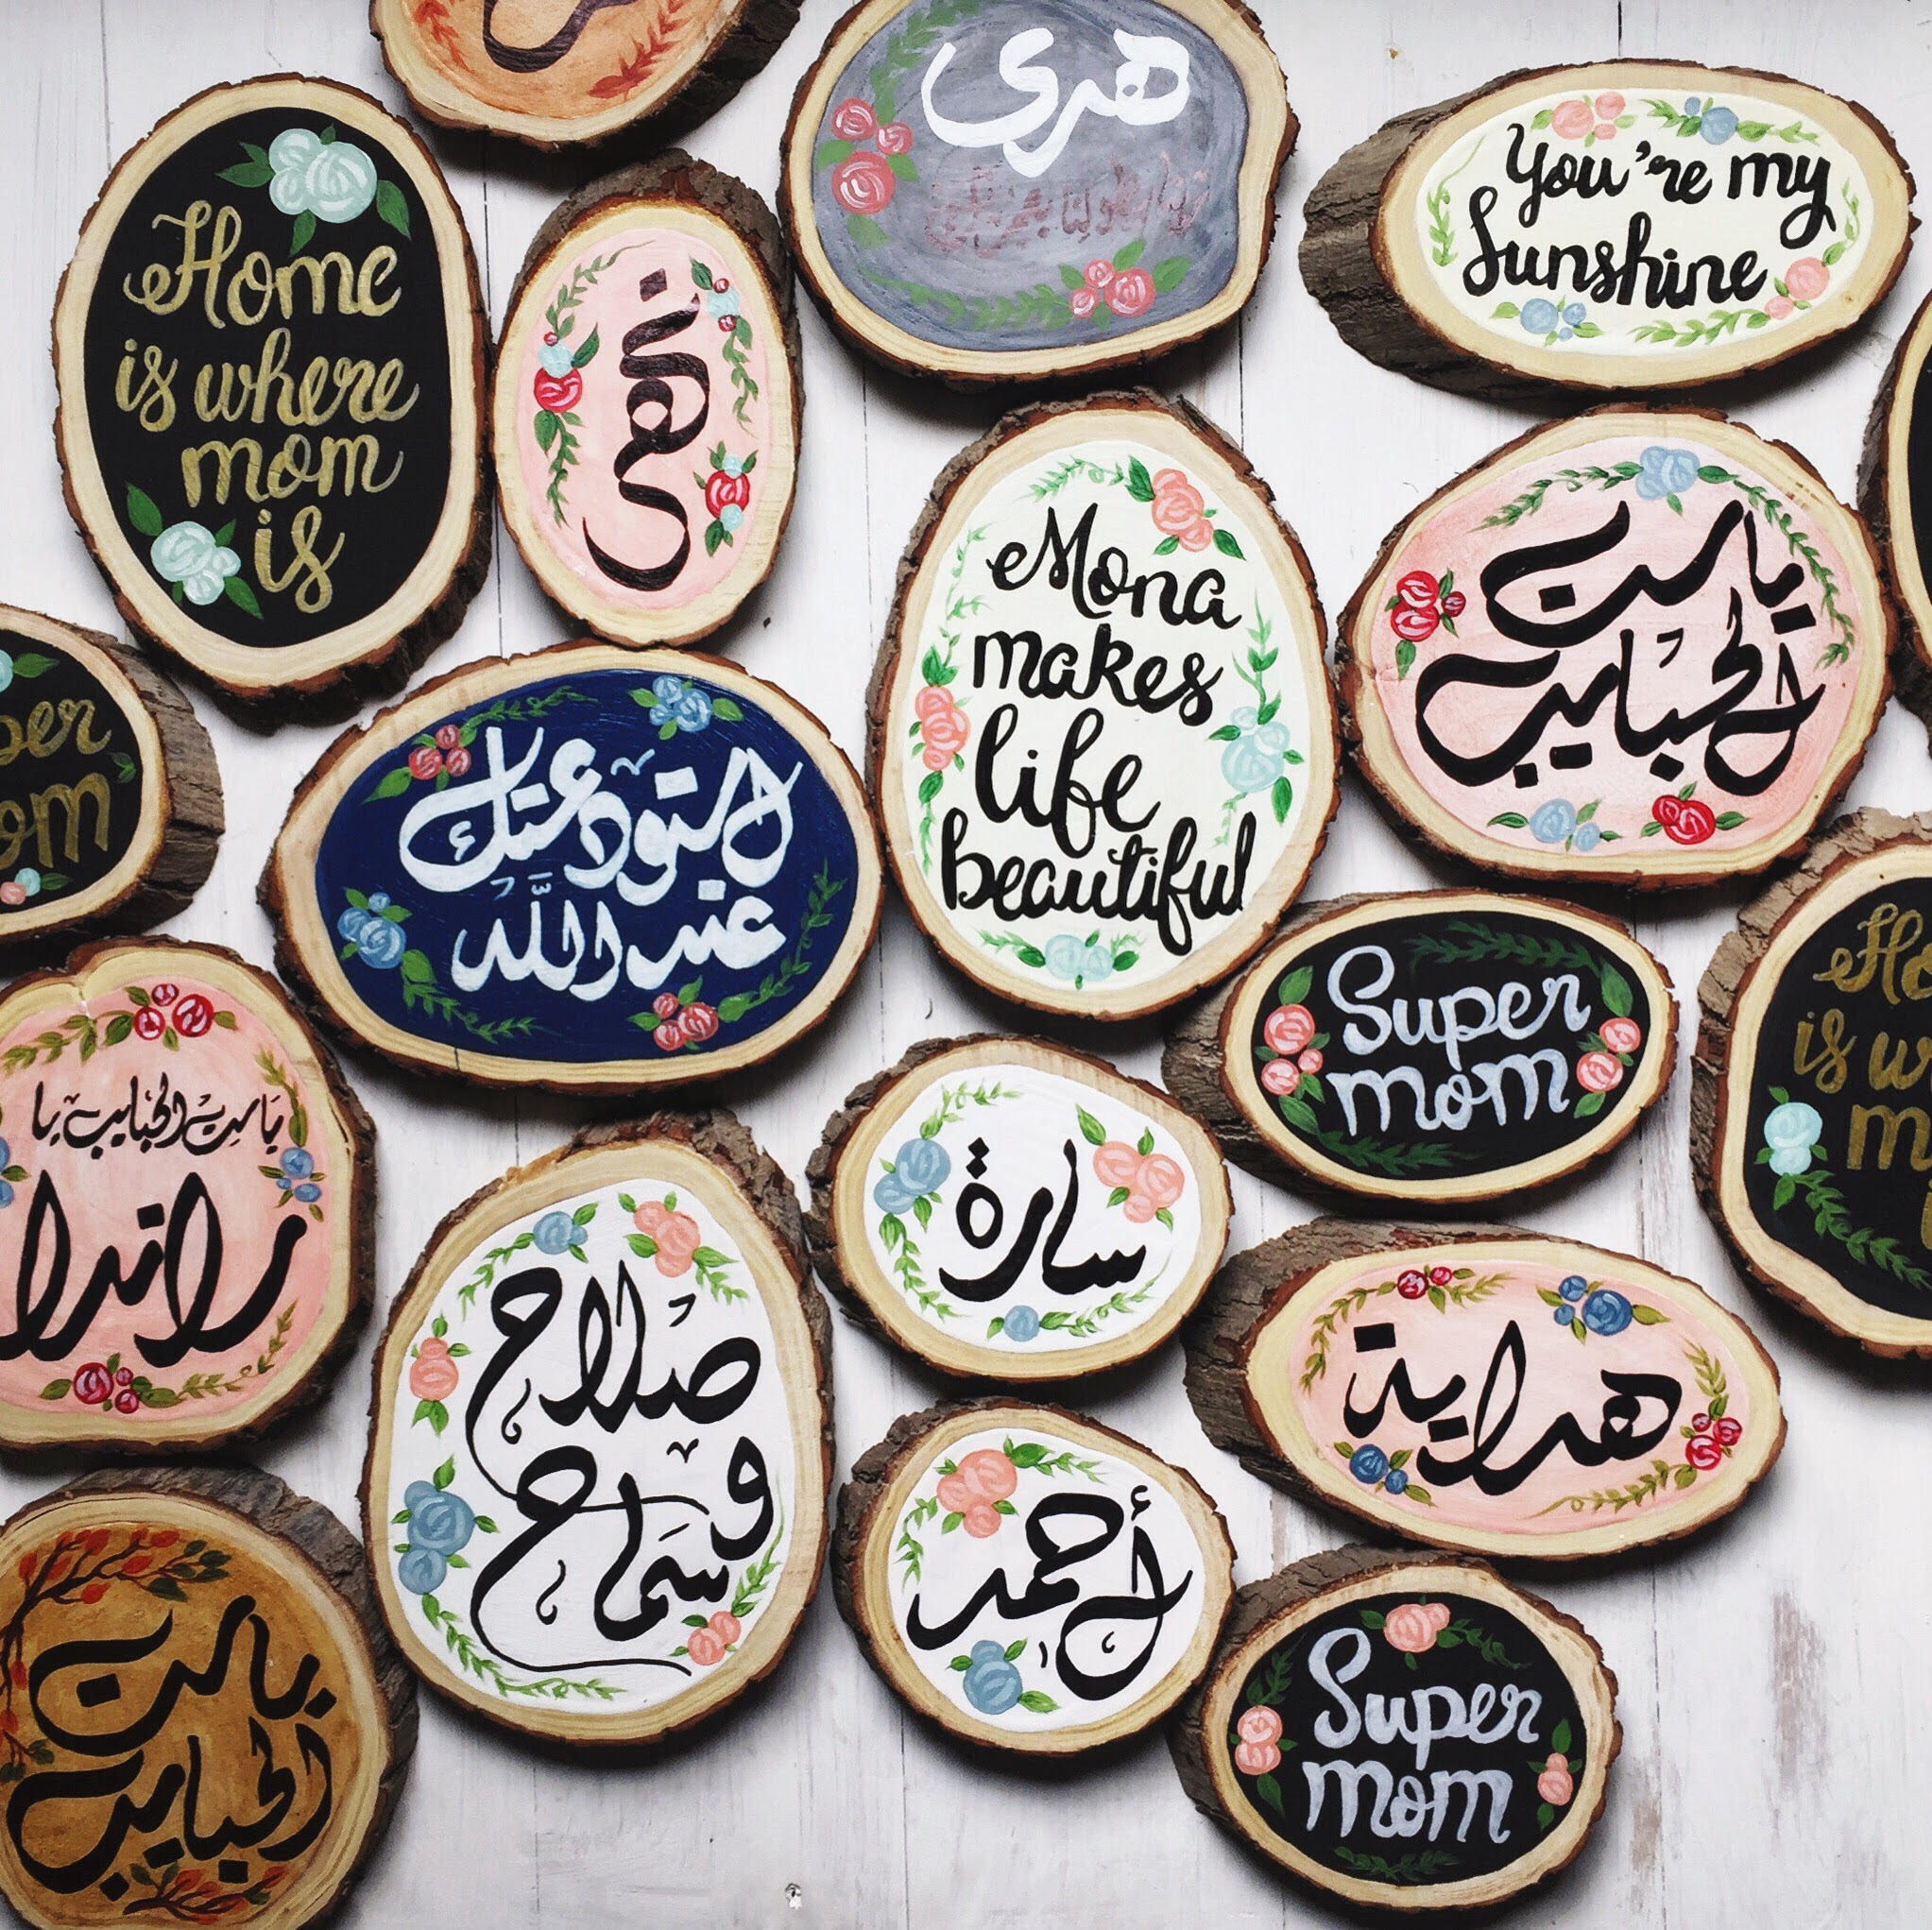 هدى
You're my
Sunshine
Home
is where
mom
is
Mona
makes
life
beautiful
يا ست
الحبايب
استودعتك
عند الله
Super
mom
يا ست الحبايب يا
راندا
سارة
صلاح
وسماح
هداية
أحمد
يا ست
الحبايب
Super
mom